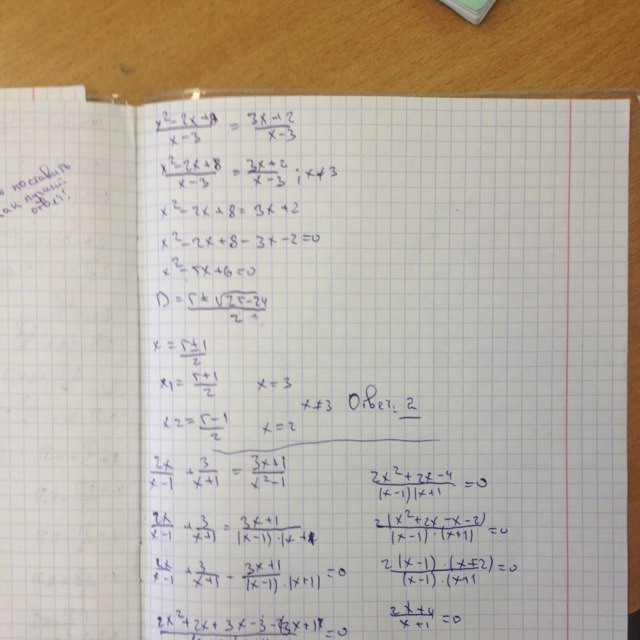 о поставить
знак
ответ!
x²-2x+8/x-3 = 3x+2/x-3
x²-2x+8/x-3 = 3x+2/x-3; x≠3
x²-2x+8=3x+2
x²-2x+8-3x-2=0
x²-5x+6=0
D=5±√25-24/2
x=5±1/2
x1=5+1/2 x=3
x2=5-1/2 x=2
x≠3 Ответ: 2
2x/x-1 + 3/x+1 = 3x+1/x²-1
2x/x-1 + 3/x+1 = 3x+1/(x-1)·(x+1
2x/x-1 + 3/x+1 - 3x+1/(x-1)·(x+1)=0
2x²+2x+3x-3-(3x+1) =0
2x²+2x-4/(x-1)(x+1=0
2(x²+2x-x-2)/(x-1)·(x+1)=0
2(x-1)·(x+2)/(x-1)·(x+1=0
2x+4/x+1=0